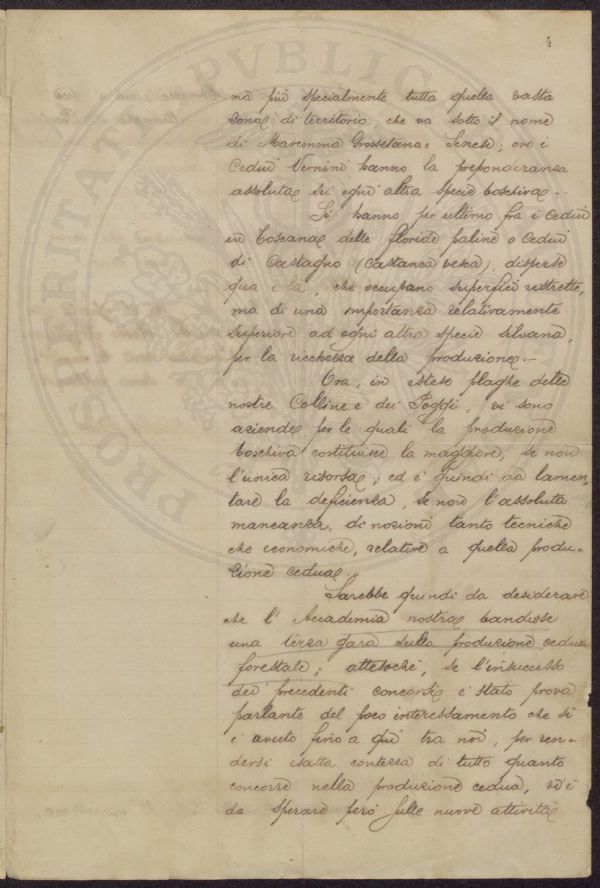 4
ma più specialmente tutta quella vasta
zona di territorio, che va sotto il nome
di Maremma Grossetana e Senese; ove i
Cedui Vernini hanno la preponderanza
assoluta su ogni altra specie boschiva -
Si hanno per ultimo fra i Cedui
in Toscana delle floride paline o Cedui
di Castagno (Castanea vesca), disperse
qua e là, che occupano superfici ristrette,
ma di una importanza relativamente
superiore ad ogni altra specie silvana,
per la ricchezza della produzione. -
Ora, in estese plaghe delle
nostre Colline e dei Poggi, vi sono
aziende per le quali la produzione
boschiva costituisce la maggiore, se non
l'unica risorsa; ed è quindi da lamen-
tare la deficienza, se non l'assoluta
mancanza, di nozioni tanto tecniche
che economiche, relative a quella produ-
zione cedua. -
Sarebbe quindi da desiderare
che l'Accademia nostra bandisse
una terza gara sulla produzione cedua
forestale; attesochè, se l'insuccesso
dei precedenti concorsi è stato prova
parlante del poco interessamento che si
è avuto fino a qui tra noi, per ren-
dersi esatta contezza di tutto quanto
concorre nella produzione cedua, v'è
da sperare però sulle nuove attività
PVBLICAE PROSPERITATI